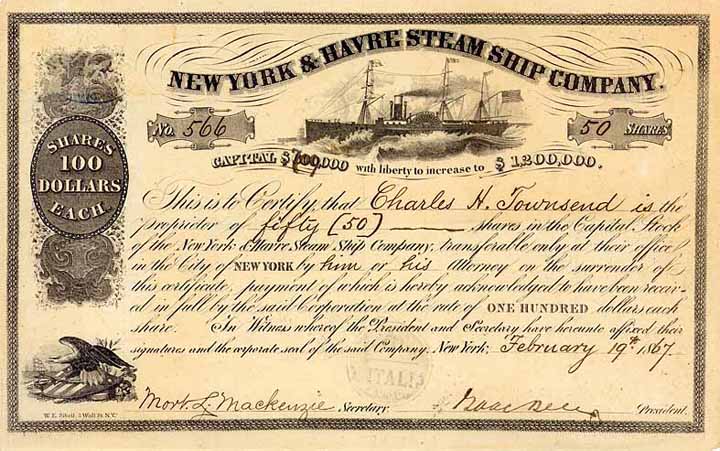 NEW YORK & HAVRE STEAM SHIP COMPANY.
No. 566
50 SHARES
CAPITAL $ 700,000 with liberty to increase to $ 1,200,000.
SHARES
100
DOLLARS
EACH
This is to Certify, that Charles H. Townsend is the
proprietor of fifty (50) shares in the Capital Stock
of the New York & Havre Steam Ship Company, transferable only at their office
in the City of NEW YORK by him or his Attorney on the surrender of
this certificate, payment of which is hereby acknowledged to have been receiv-
ed in full by the said Corporation at the rate of ONE HUNDRED dollars each
share. In Witness whereof the President and Secretary have hereunto affixed their
signatures and the corporate seal of the said Company, New York, February 19th 1867.
Mort. L. Mackenzie Secretary.
Isaac Bell President.
W. E. Sibell, 1 Wall St. N.Y.